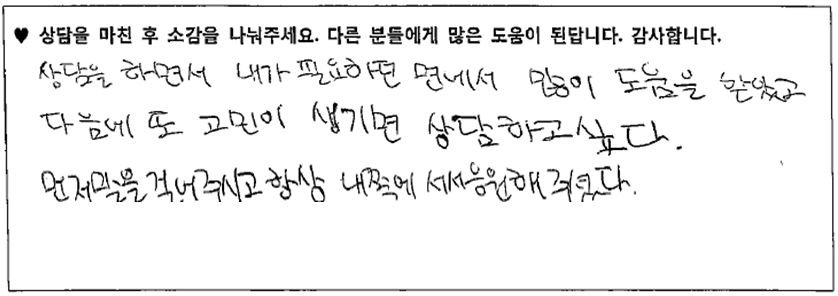 ♥ 상담을 마친 후 소감을 나눠주세요. 다른 분들에게 많은 도움이 된답니다. 감사합니다.
상담을 하면서 내가 필요하던 면에서 많이 도움을 받았고
다음에 또 고민이 생기면 상담하고싶다.
먼저말을걸어주시고항상 내쪽에 서서응원해 주셨다.